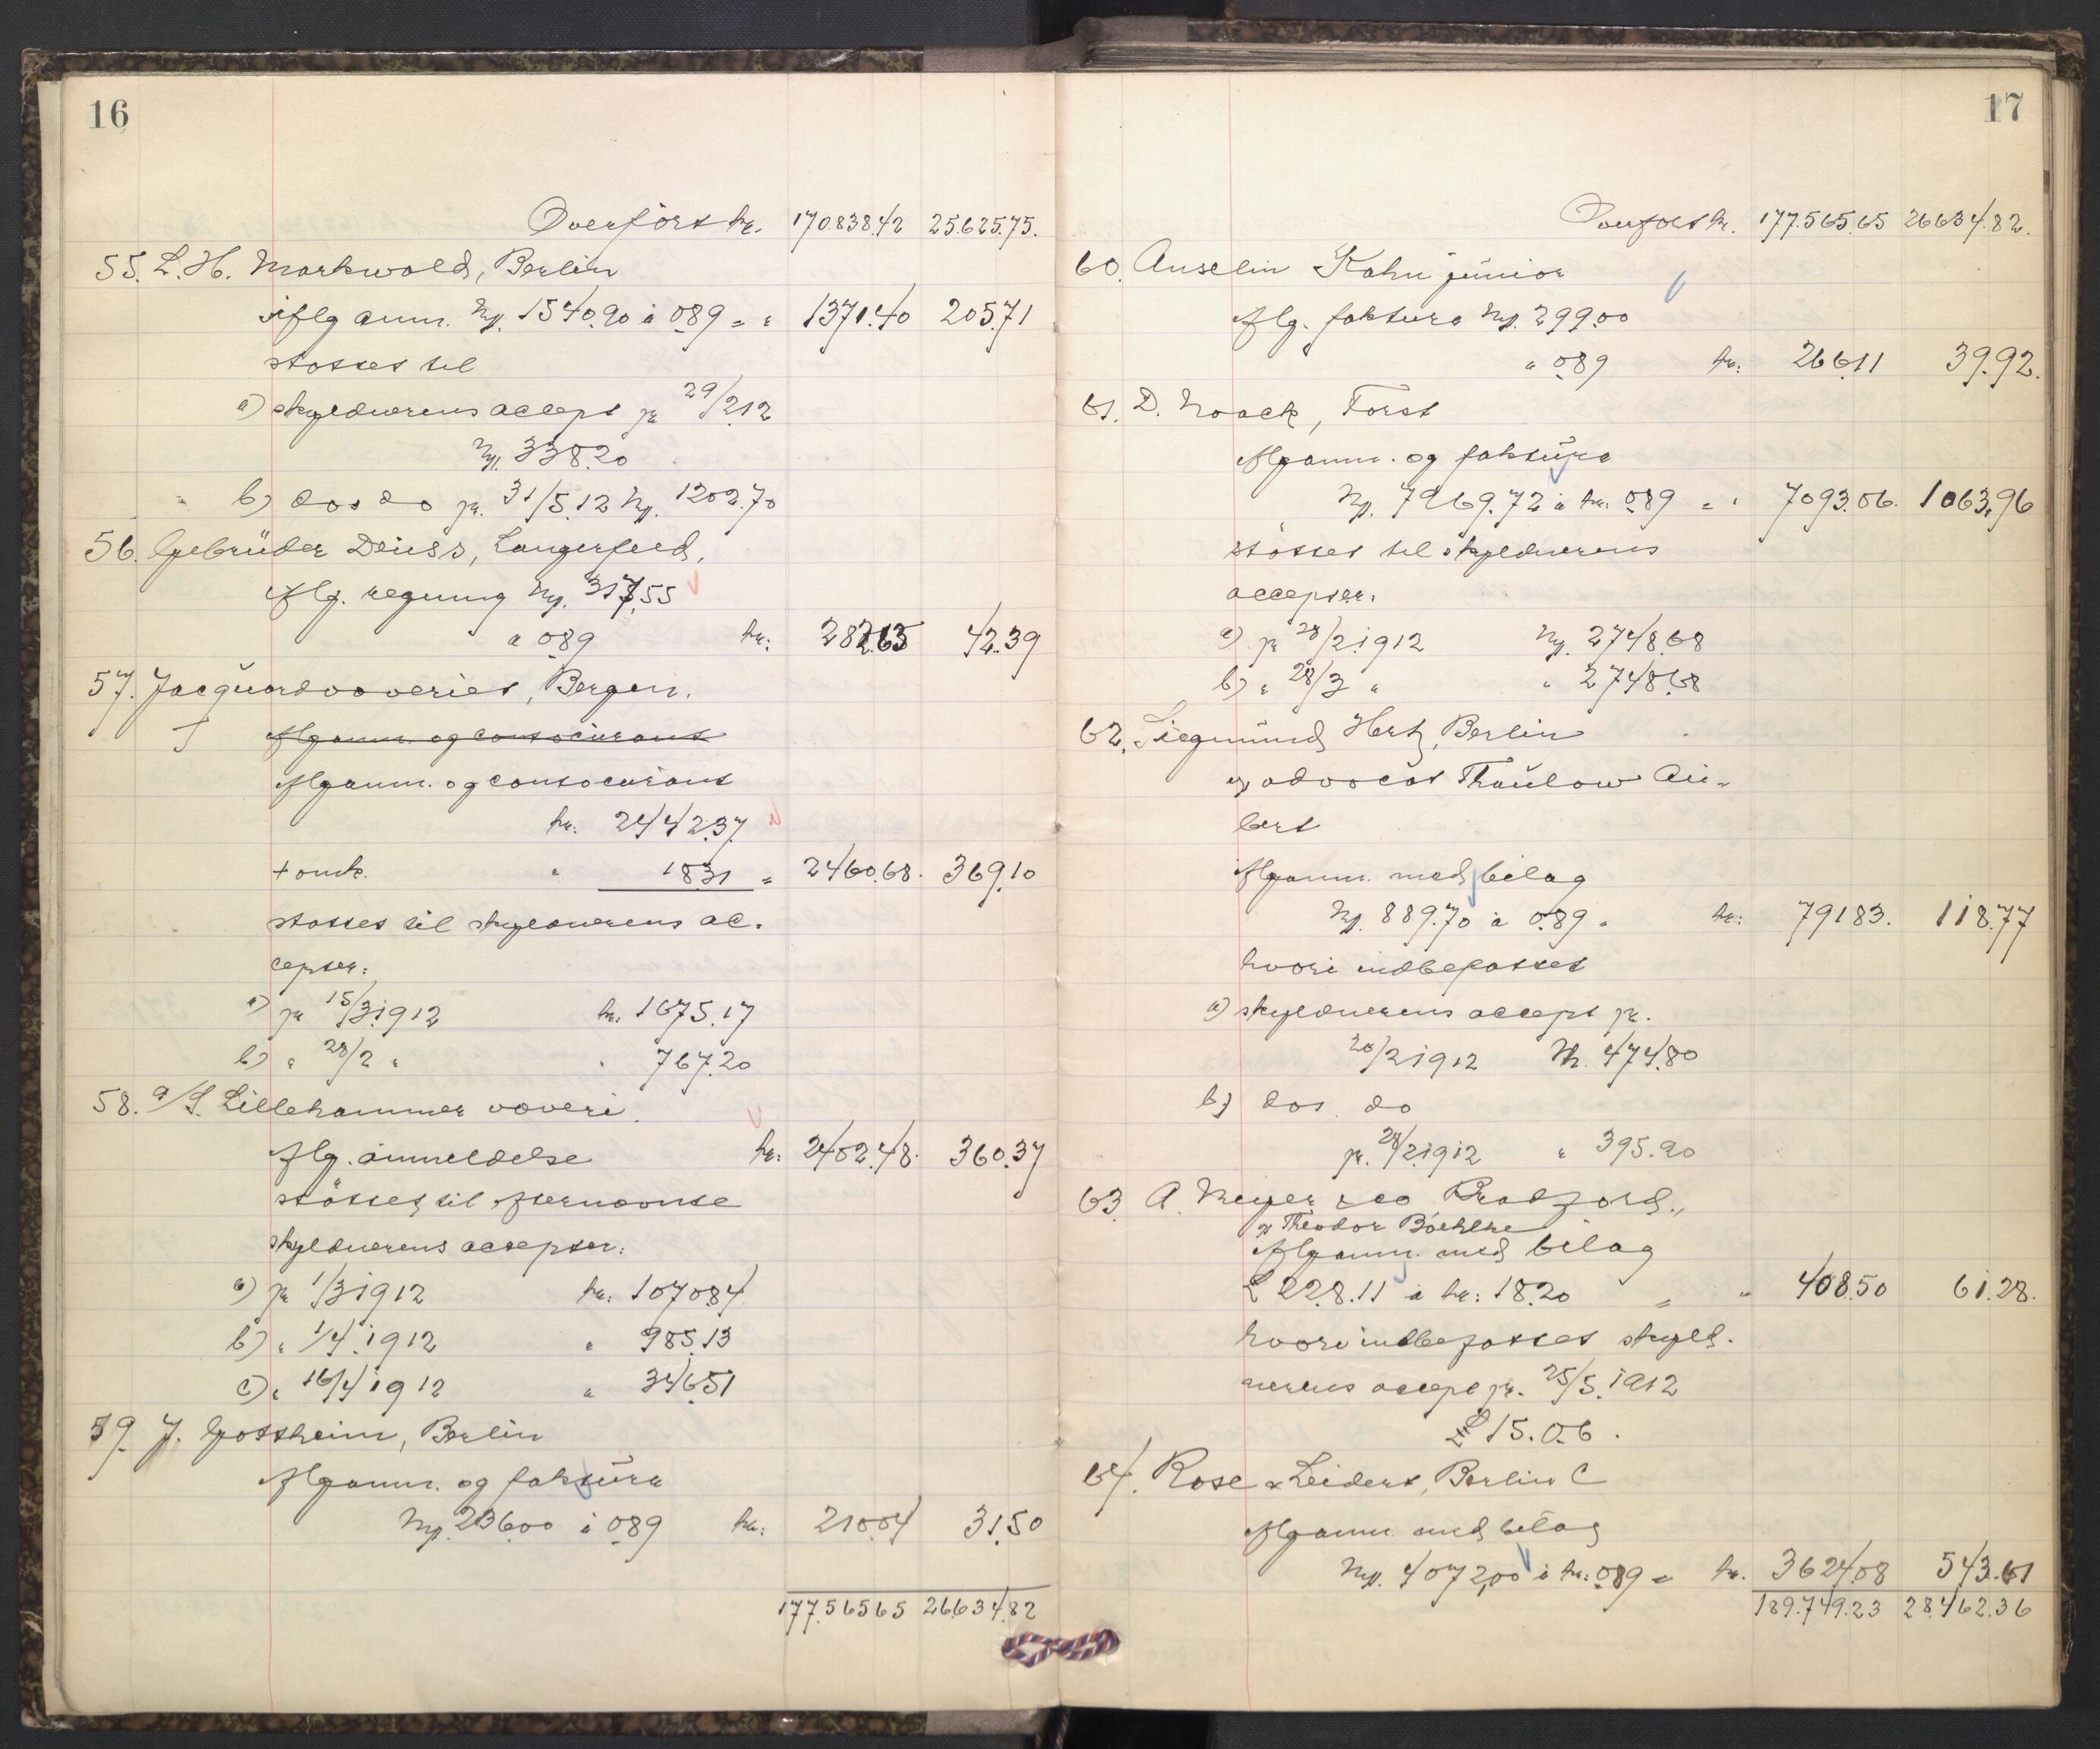 16
Overført kr. 170.838.42 25.625.75.
55. L. H. Markwald, Berlin
iflg anm. Mk. 1540.90 à 0.89 = " 1371.40 205.71
støttes til
a) skyldnerens accept pr 29/2.12
Mk. 338.20
b) dos do pr. 31/5.12 Mk. 1202.70
56. Gebrüder Deuss, Langerfeld,
iflg. regning Mk. 317,55
a 0.89 kr: 282.63 42.39
57. Jacquardvæveriet, Bergen.
iflg anm. og contocurant
iflg anm. og contocurant
kr: 2442.37
+ omk. " 18.31 = 2460.68. 369.10
støttes til skyldnerens ac-
cepter:
a) pr 15/3.1912 kr: 1675.17
b) " 28/2 " " 767.20
58. A/S. Lillehammer væveri.
iflg. anmeldelse kr: 2402.48. 360.37
støttes til efternævnte
skyldnerens accepter:
a) pr 1/3 1912 kr: 1070.84
b) " 1/4 1912 " 985.13
c) " 16/4 1912 " 346.51
59. J. Gottheim, Berlin
iflg anm. og faktura
Mk. 236.00 à 0.89 kr: 210.04 31.50
177.565.65 26.634.82
17
Overført kr. 177.565.65 26634.82.
60. Anselin Kahn junior
iflg. faktura Mk. 299.00
a 0.89 kr: 266.11 39.92.
61. D. Noack, Forst
iflg anm. og faktura
Mk. 7969.72 à kr: 0.89 = " 7093.06. 1063,96
støttes til skyldnerens
accepter:
a) pr 28/2.1912 Mk. 2748.68
b) " 28/3 " " 2748.68
62. Siegmund Hertz, Berlin
v/ advocat Thaulow Au-
bert
iflg anm. med bilag
Mk. 889.70 à 0.89 = kr: 791.83. 118.77
hvori indbefattet
a) skyldnerens accept pr.
20/2 1912 Mk. 474.80
b) dos. do
pr. 28/2.1912 " 395.90
63. A. Meyer & co, Bradford.,
v/ Theodor Boehlke
iflg anm. med bilag
£ 22.8.11 à kr: 18.20 = " 408.50 61.28.
hvori indbefattet skyld-
nerens accept pr. 25/5.1912
£ 15.0.6.
64. Rose & Leidert, Berlin C
iflg anm. med bilag
Mk. 4072,00 à kr: 0.89 = kr. 3624.08 543.61
189.749.23 28.462.36